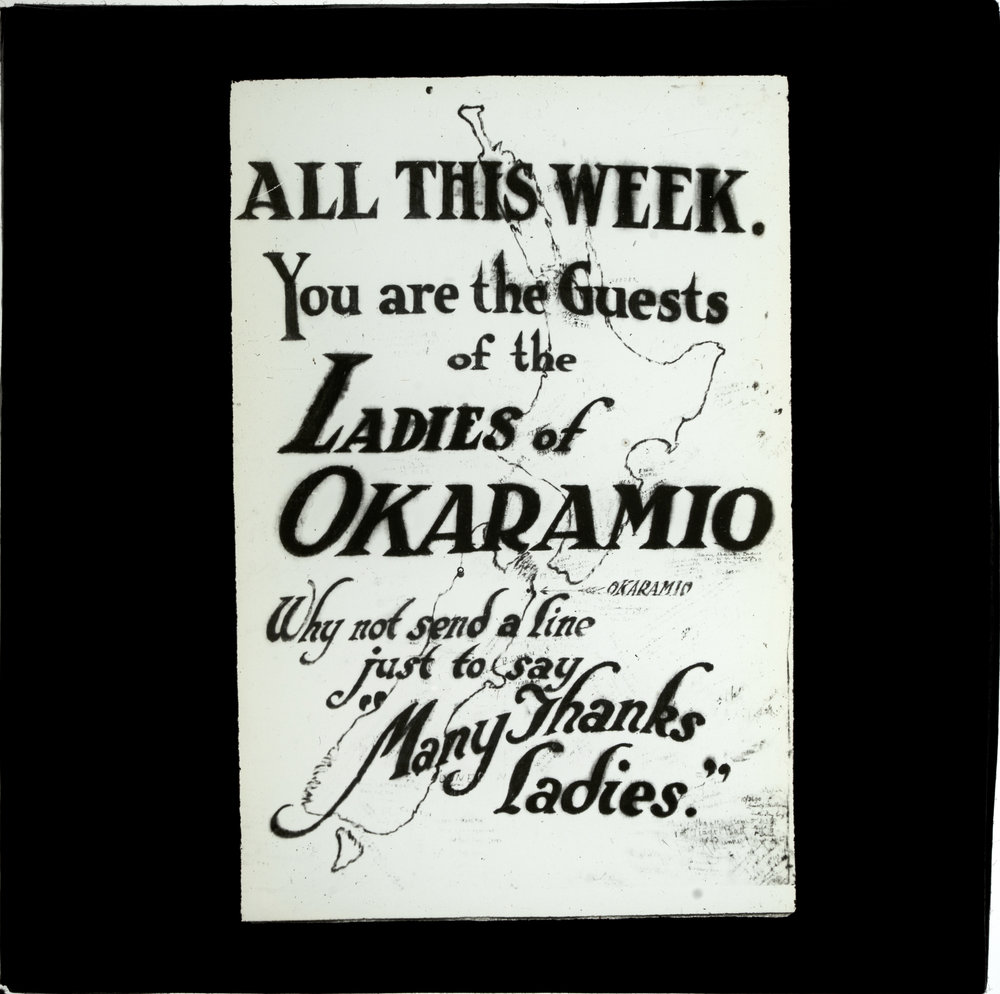 ALL THIS WEEK.
You are the Guests
of the
LADIES of
OKARAMIO
OKARAMIO
Why not send a line
just to say
"Many Thanks
Ladies."